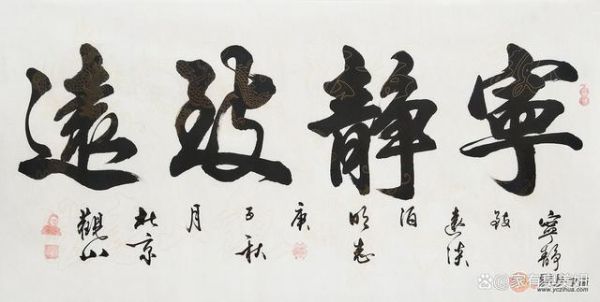 寧靜致遠
寧靜
致
遠淡
泊
明志
庚
子秋
月
北京
觀山
www.yczihua.com